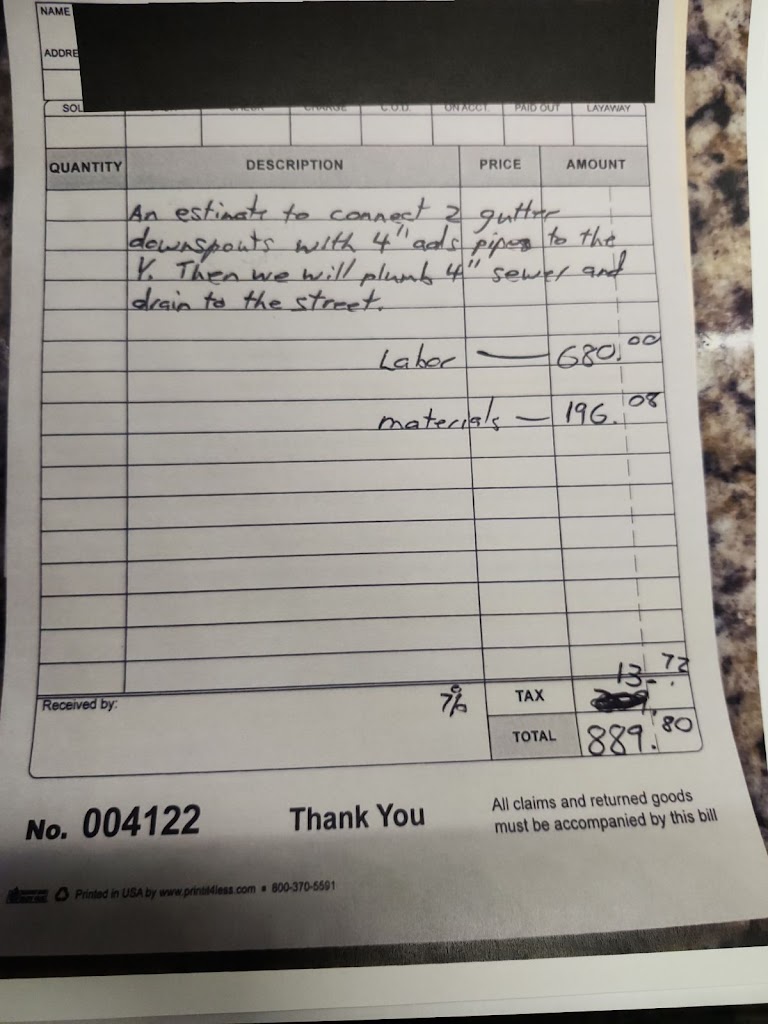 NAME
ADDRE
SOL
CHARGE C.O.D. ON ACCT PAID OUT LAYAWAY
QUANTITY DESCRIPTION PRICE AMOUNT
An estimate to connect 2 gutter
downspouts with 4" ads pipes to the
Y. Then we will plumb 4" sewer and
drain to the street.
Labor — 680.00
materials — 196.08
13.72
Received by: 7% TAX
TOTAL 889.80
No. 004122 Thank You All claims and returned goods
must be accompanied by this bill
Printed in USA by www.print4less.com • 800-370-5591